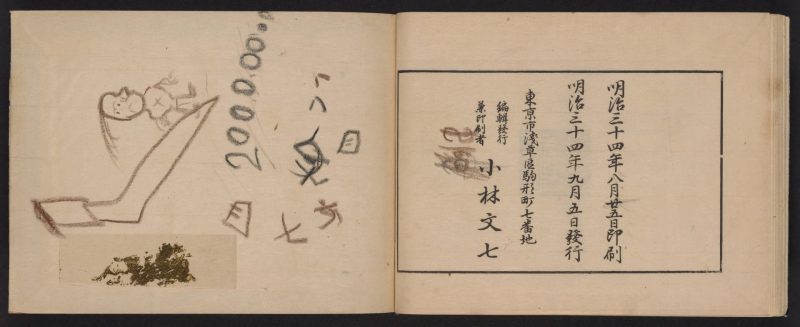 明治三十四年八月廿五日印刷
明治三十四年九月五日發行
東京市浅草區駒形町七番地
編輯發行
兼印刷者
小林文七
2000.00